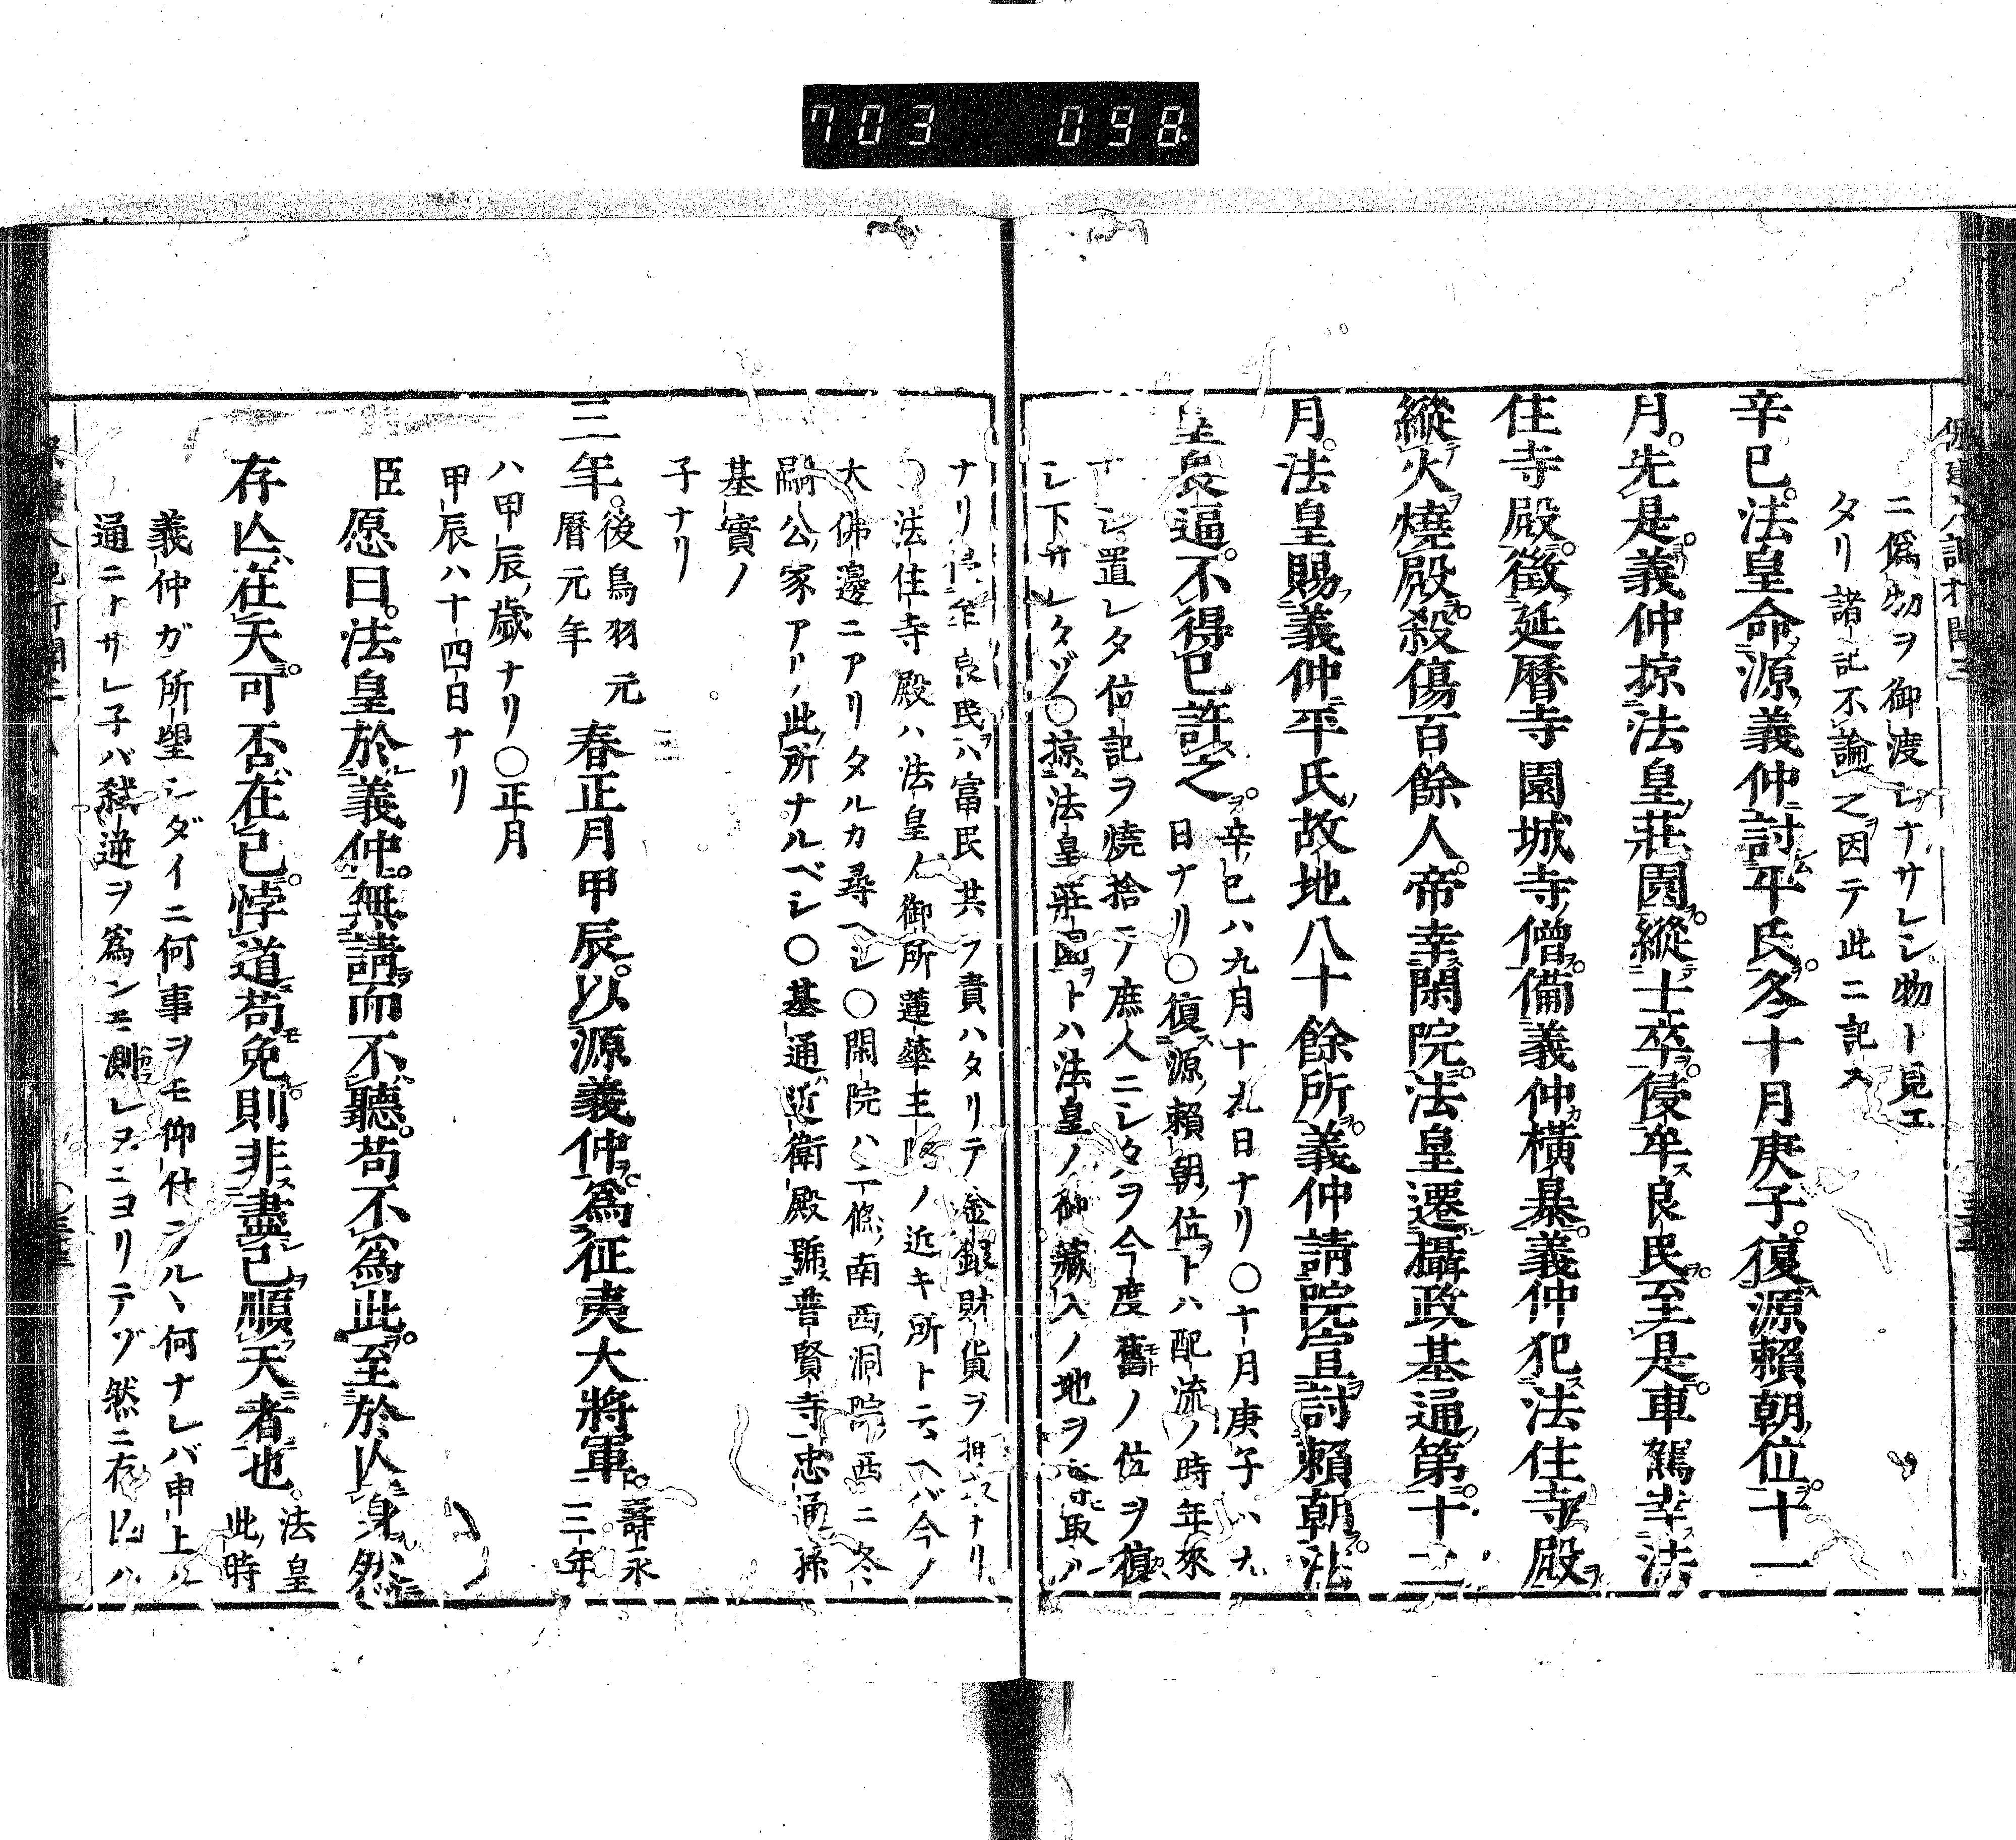 703 098
ニ偽物ヲ御渡レナサレシ物ト見エ
タリ諸記不論之因テ此ニ記ス
辛巳法皇命源義仲討平氏冬十月庚子復源賴朝位十一
月先是義仲掠法皇莊園縱士卒侵牟良民至是車駕幸法
住寺殿徵延曆寺園城寺僧備義仲橫暴義仲犯法住寺殿
縱火燒殿殺傷百餘人帝幸閑院法皇遷攝政基通第十二
月法皇賜義仲平氏故地八十餘所義仲請院宣討賴朝法
皇畏逼不得已許之
辛巳ハ九月十九日ナリ〇十月庚子ハ九
日ナリ〇復源賴朝位トハ配流ノ時年來
ナシ置レタ位記ヲ燒捨テ庶人ニシタヲ今度舊ノ位ヲ復
シ下サレタゾ〇掠法皇莊園トハ法皇ノ御藏入ノ地ヲ取ル
ナリ侵牟良民ハ富民共ヲ責ハタリテ金銀財貨ヲ押ナリ
〇法住寺殿ハ法皇ノ御所蓮華王院ノ近キ所ト云ヘバ今ノ
大佛邊ニアリタルカ尋ヘシ〇閑院ハ二條南西洞院西ニ冬
嗣公ノ家アリ此所ナルベシ〇基通近衛殿號普賢寺忠通孫
基實ノ
子ナリ
三年後鳥羽元曆元年春正月甲辰以源義仲爲征夷大將軍壽永三年
ハ甲辰歲ナリ〇正月
甲辰ハ十四日ナリ
臣愿曰法皇於義仲無請而不聽苟不爲此至於亾身然
存亾在天可否在己悖道苟免則非盡己順天者也法皇此時
義仲ガ所望シダイニ何事ヲモ仰付ラルヽ何ナレバ申上ル
通ニトサレ子バ弑逆ヲ爲ンモ測レヌニヨリテゾ然ニ存亾ハ